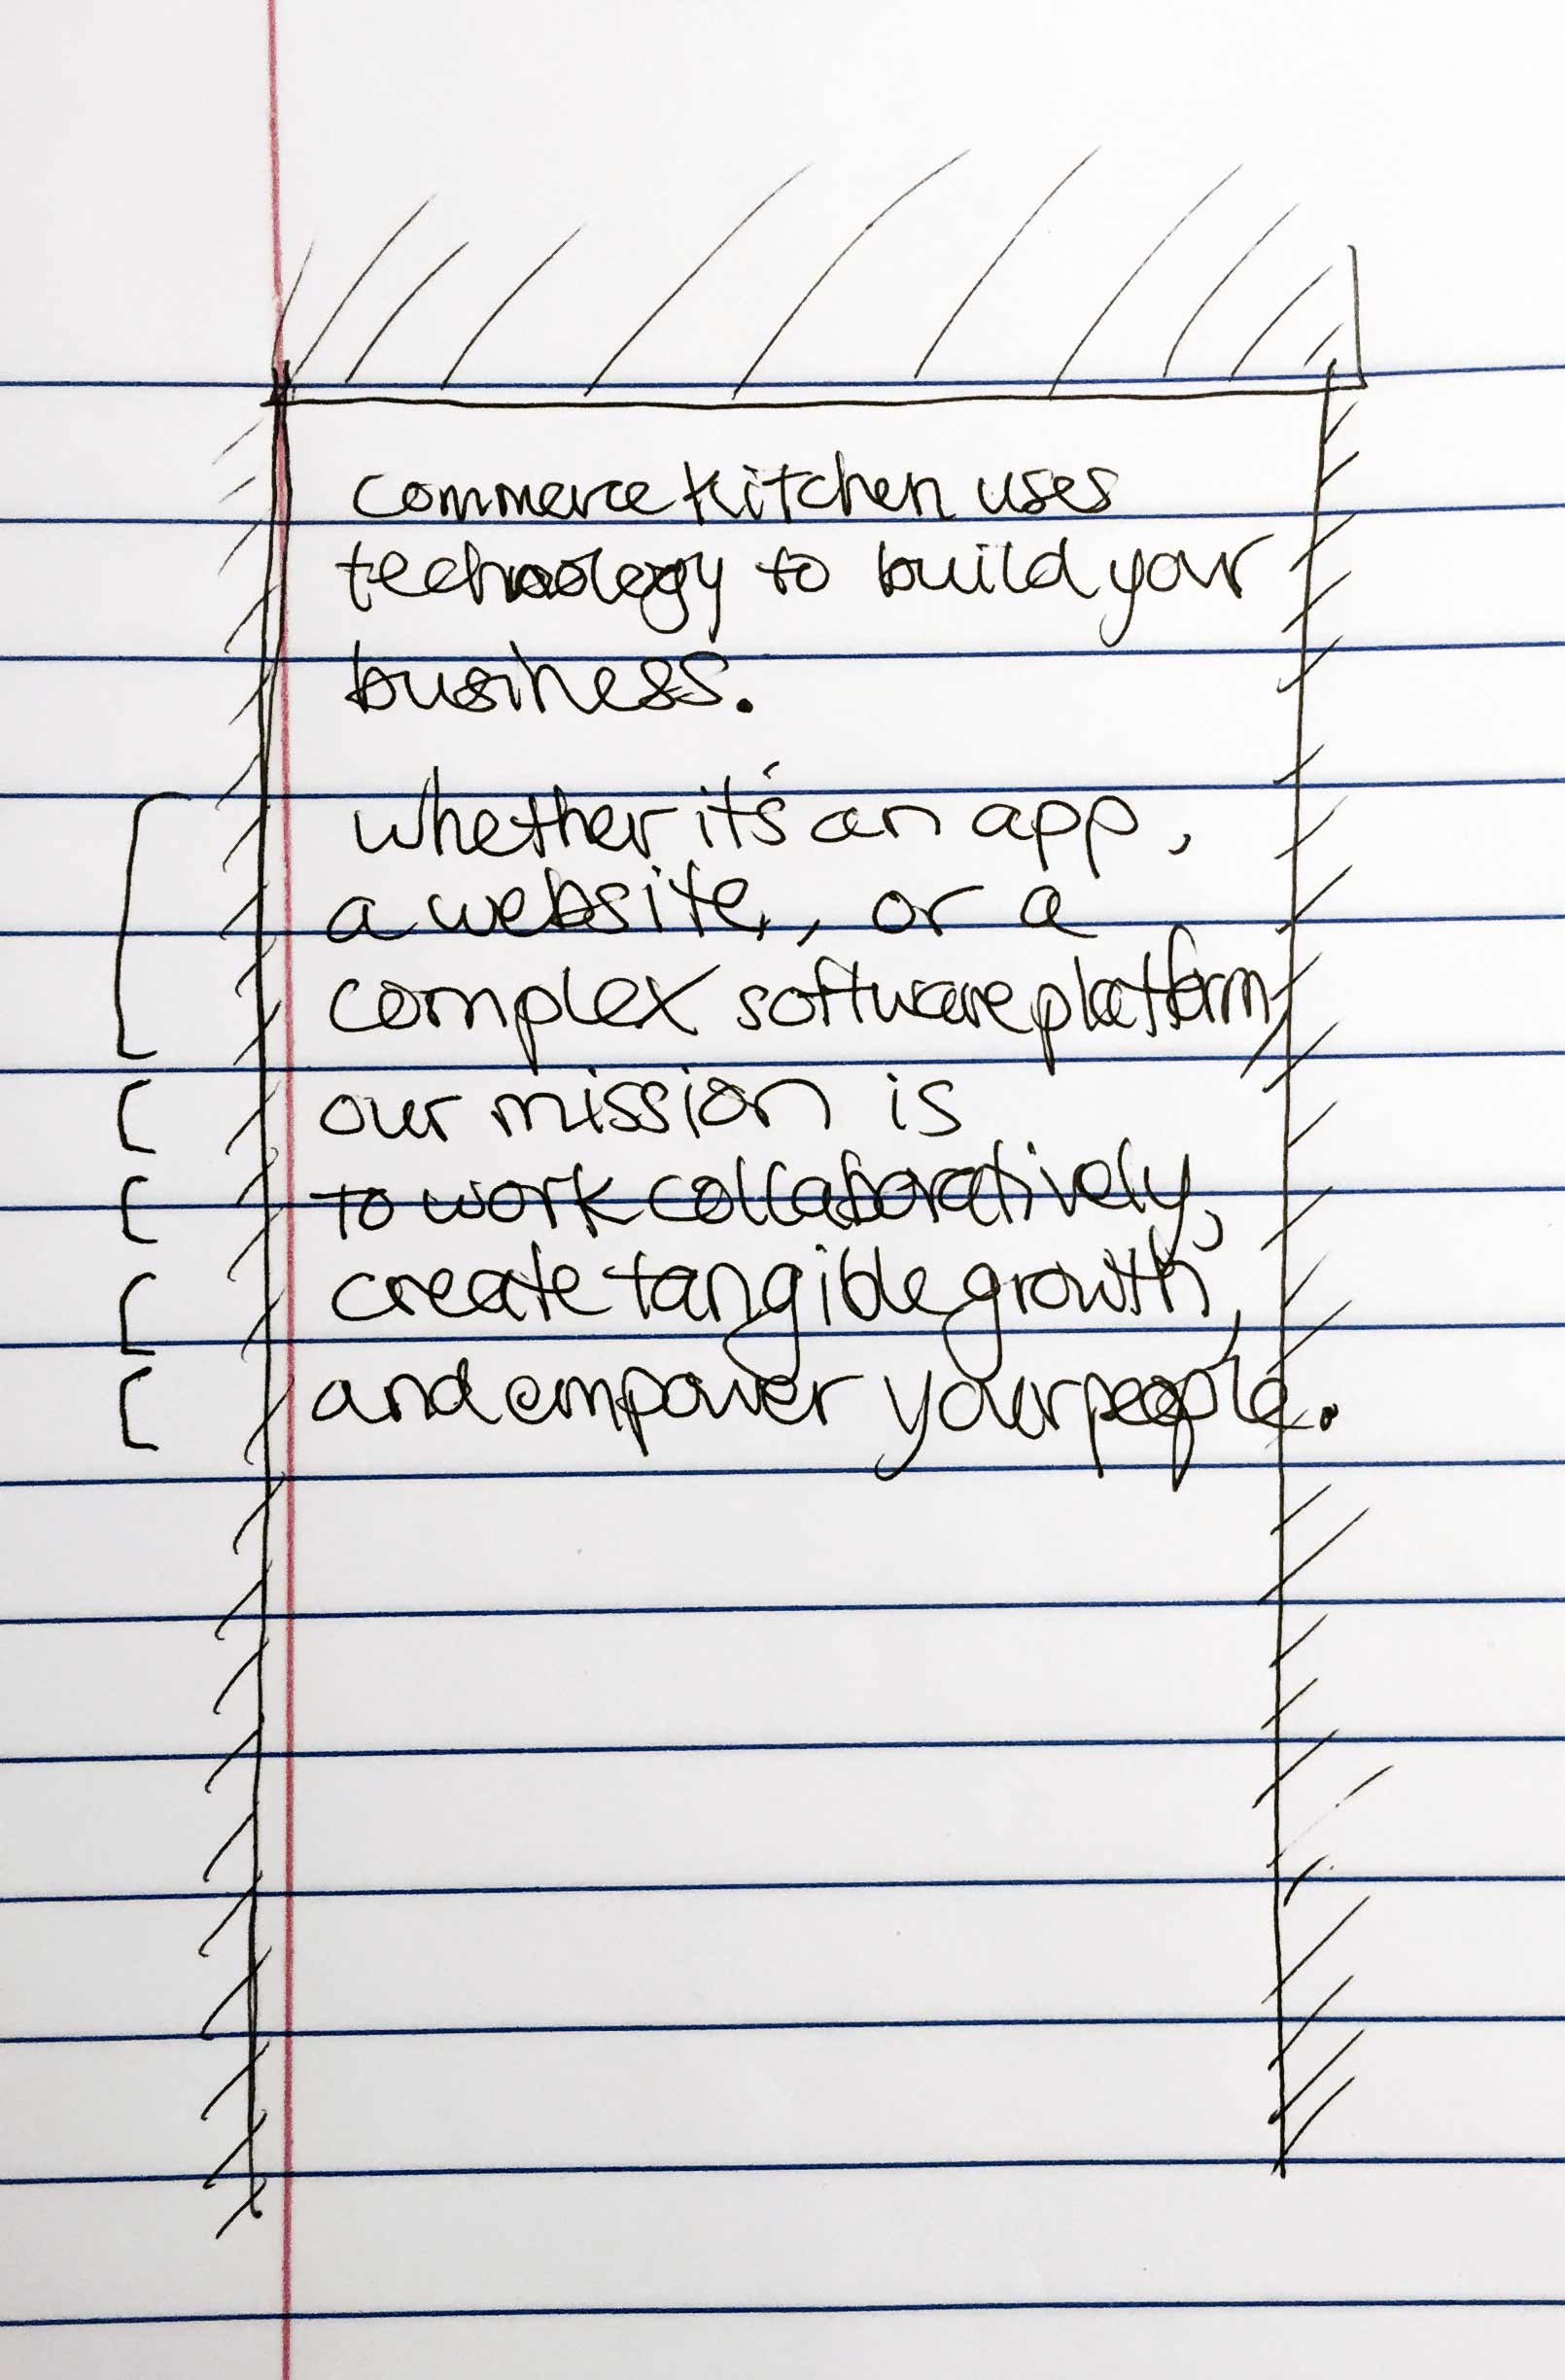 commerce kitchen uses
technology to build your
business.
whether it's an app,
a website, or a
complex software platform,
our mission is
to work collaboratively,
create tangible growth,
and empower your people.